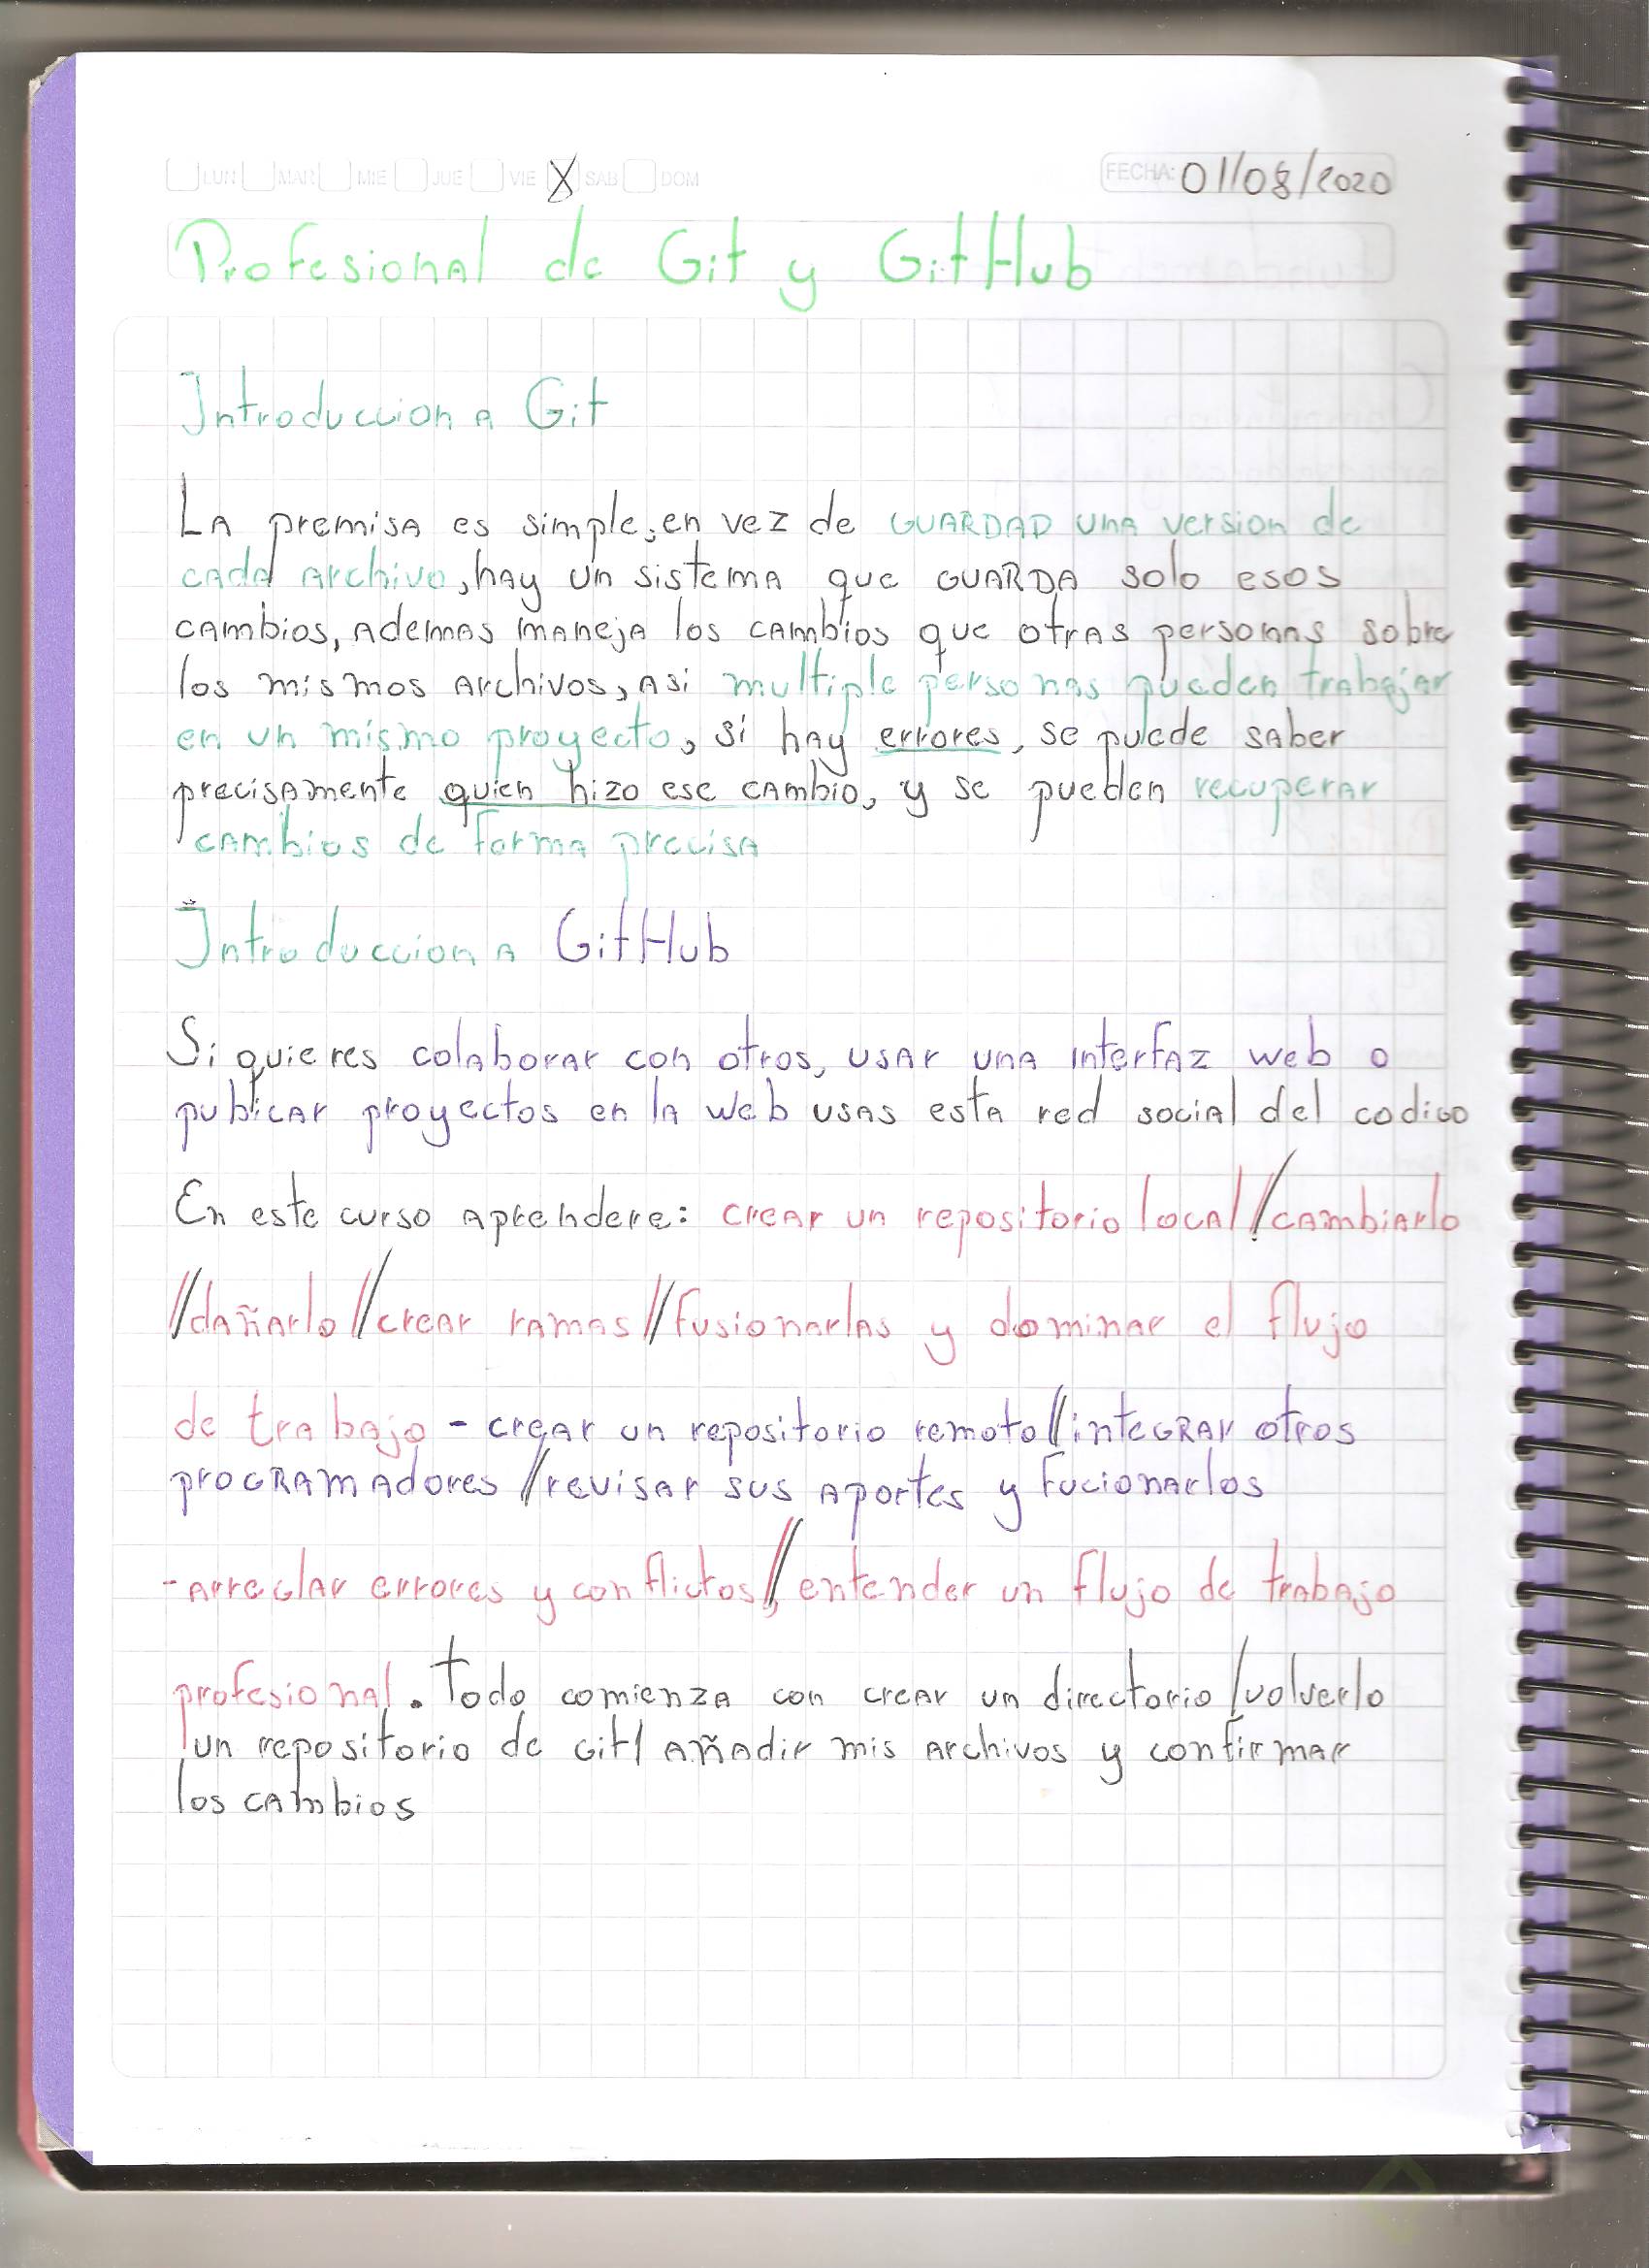 LUN MAR MIE JUE VIE X SAB DOM FECHA: 01/08/2020
Profesional de Git y GitHub
Introduccion a Git
La premisa es simple, en vez de GUARDAD una version de
cada archivo, hay un sistema que GUARDA solo esos
cambios, ademas maneja los cambios que otras personas sobre
los mismos archivos, asi multiple personas pueden trabajar
en un mismo proyecto, si hay errores, se puede saber
precisamente quien hizo ese cambio, y se pueden recuperar
cambios de forma precisa
Introduccion a GitHub
Si quieres colaborar con otros, usar una interfaz web o
publicar proyectos en la web usas esta red social del codigo
En este curso aprendere: crear un repositorio local//cambiarlo
//dañarlo//crear ramas//fusionarlas y dominar el flujo
de trabajo - crear un repositorio remoto//integrar otros
programadores //revisar sus aportes y fucionarlos
- arreglar errores y conflictos//entender un flujo de trabajo
profesional. Todo comienza con crear un directorio/volverlo
un repositorio de git/ añadir mis archivos y confirmar
los cambios